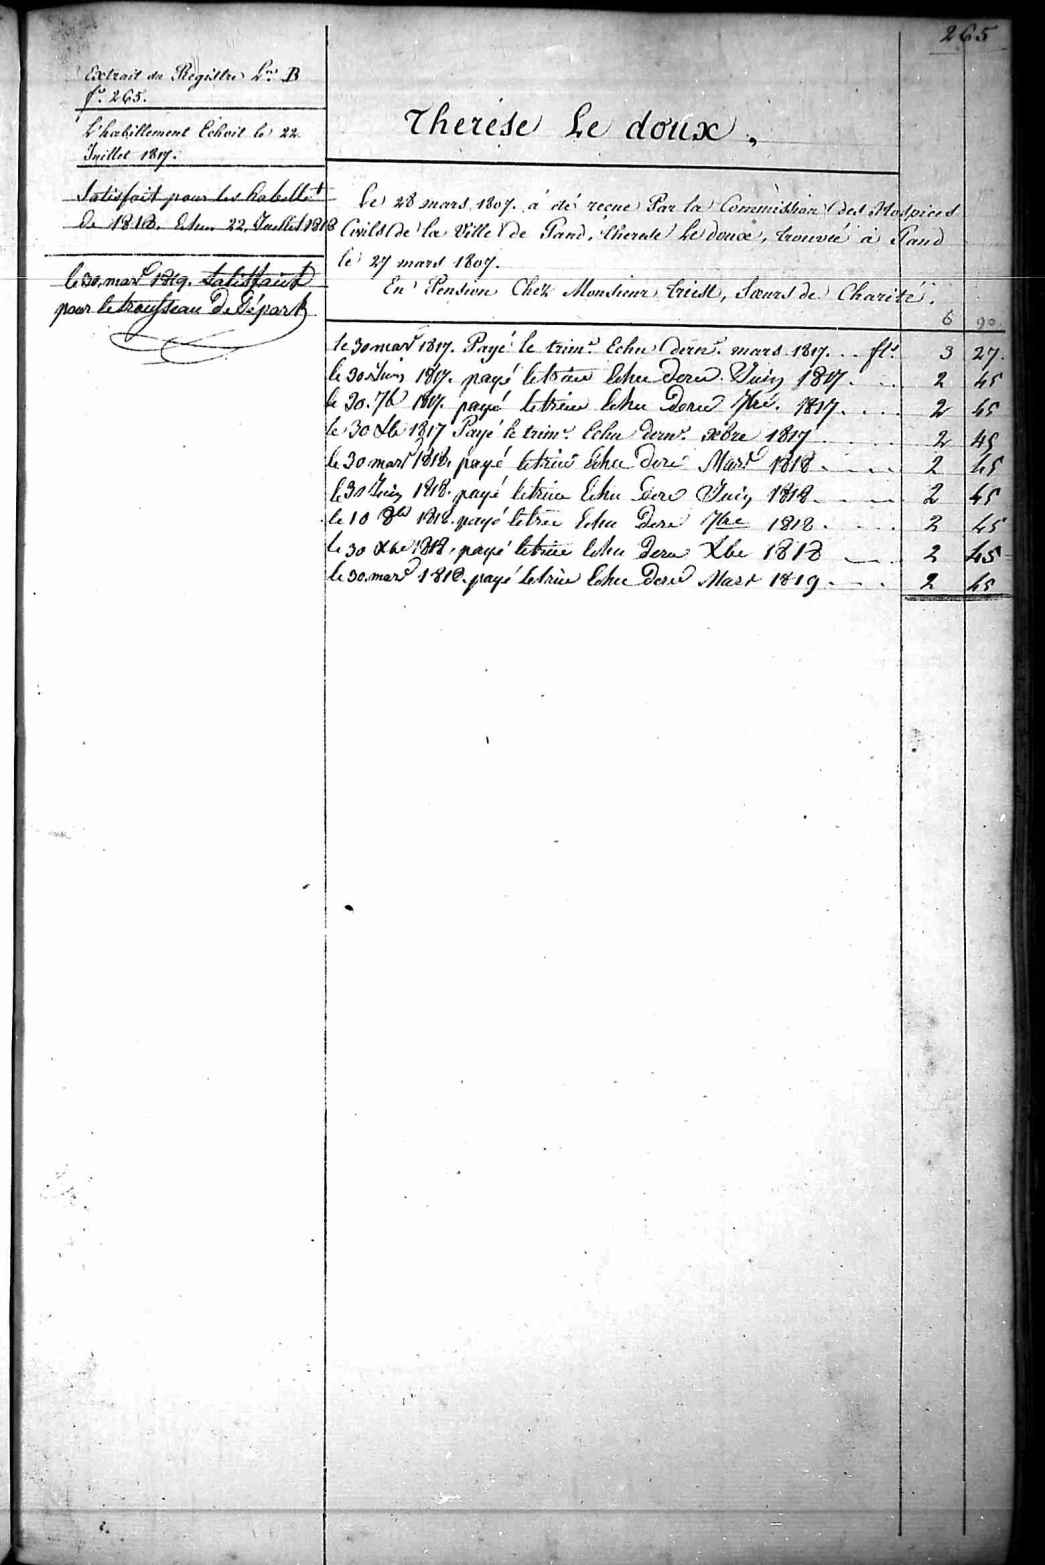 265
Extrait du Registre L.re B
f.o 265.
L'habillement Echoit le 22
Juillet 1817.
Satisfait pour les habellt
de 1818. Echu 22 Juillet 1818
le 30 mars 1819. Satisfait
pour le trousseau De Départ
Therése Le doux,
Le 28 mars 1807. à été reçue Par la Commission des Hospices
Civils de la Ville de Gand, therese Le doux, trouvée à Gand
le 27 mars 1807.
En Pension Chez Monsieur triest, Sœurs de Charité.
6 90
le 30 mars 1817. Payé le trim.e Echu dern.r mars 1817. . . fl.s 3 27.
le 30 Juin 1817. payé le trim Echu dern. Juin 1817. . . 2 45
le 30. 7b 1817. payé le trim Echu Dern 7bre. 1817. . . . 2 45
le 30 Xb 1817 Payé le trim.e Echu dern.r xbre 1817 . . . . 2 45
le 30 mars 1818. payé le trim Echu dern Mars 1818 . . . . 2 45
le 30 Juin 1818. payé le trim Echu dern Juin 1818 . . . 2 45
le 10 8b 1818. payé le trim Echu Dern 7bre 1818 . . . 2 45
le 30 Xbre 1818. payé le trim Echu Dern Xbre 1818 . . . 2 45
le 30. mars 1818. payé le trim Echu Dern Mars 1819 . . . . 2 45